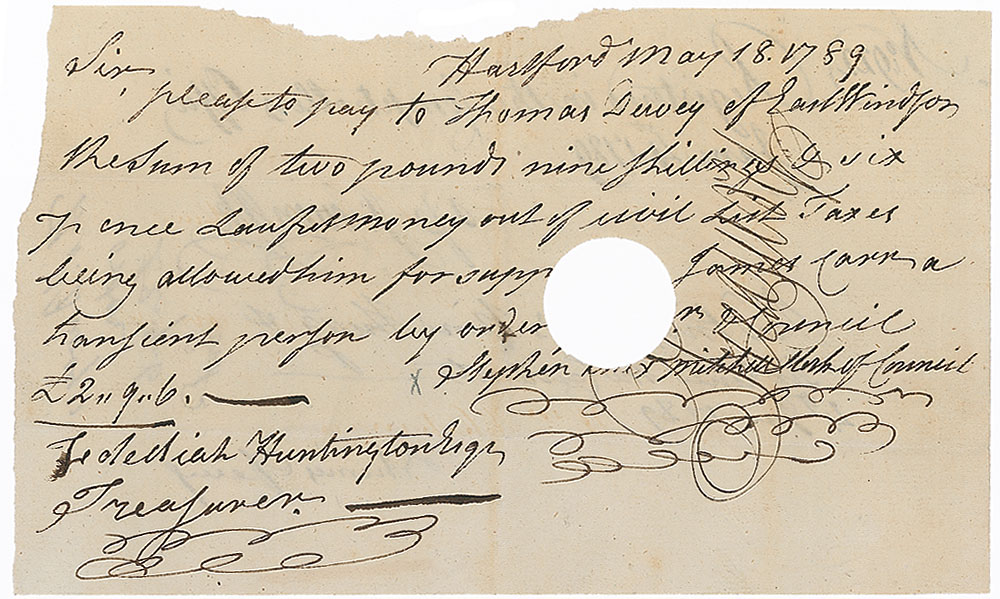 Hartford May 18. 1789
Sir,
please to pay to Thomas Dewey of East Windsor
the Sum of two pounds nine Shillings & six
pence Lawful money out of civil List Taxes
being allowed him for supp James Carr a
transient person by order of Council
Stephen Mix Mitchell Clerk of Council
£2,, 9,, 6.
Jedediah Huntington Esqr
Treasurer